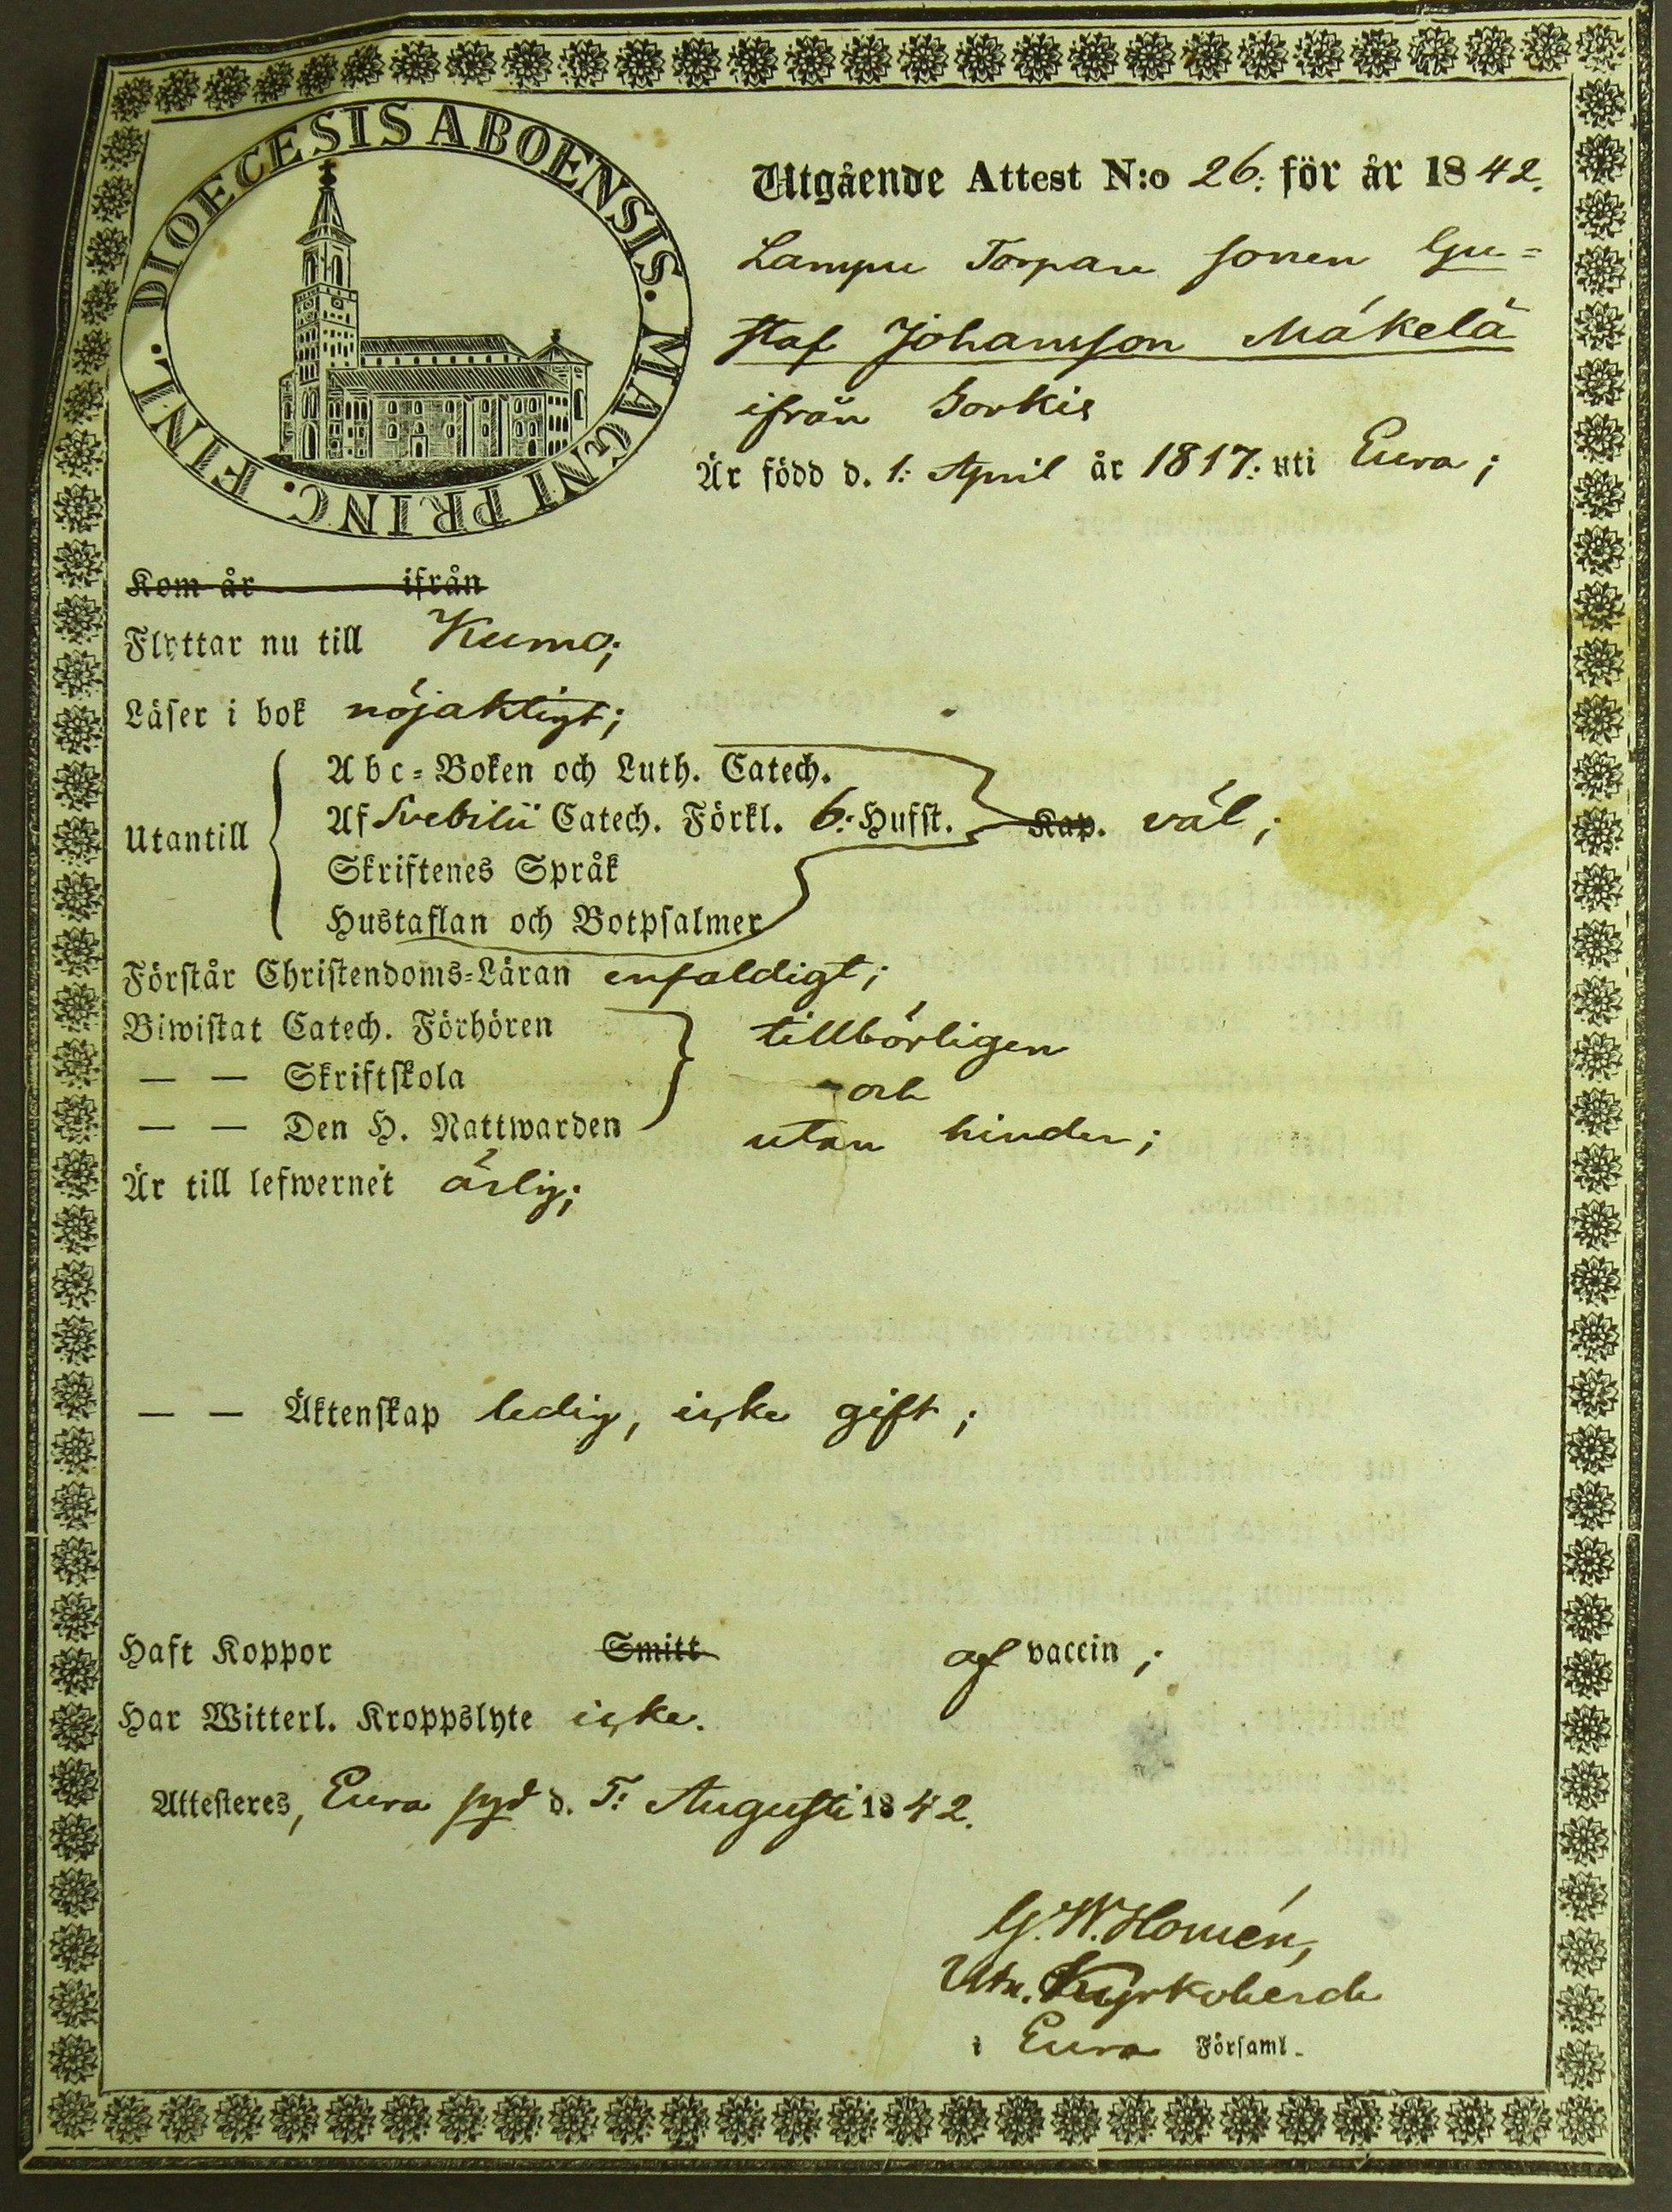 DIOECESIS ABOENSIS. MAGNI PRINC. FINL.
Utgående Attest N:o 26: för år 1842.
Lampu Torpare sonen Gu=
staf Johansson Mäkelä
ifrån Sorkis
Är född d. 1: April år 1817: uti Eura;
Kom år ifrån
Flyttar nu till Kumo;
Läser i bok nöjaktigt;
Utantill
Abc=Boken och Luth. Catech.
Af Svebilii Catech. Förkl. 6: Hufst. Kap. väl;
Skriftenes Språk
Hustaflan och Botpsalmer
Förstår Christendoms=Läran enfaldigt;
Biwistat Catech. Förhören tillbörligen
— — Skriftskola och
— — Den H. Nattwarden utan hinder;
Är till lefwernet ärlig;
— — Äktenskap ledig, icke gift;
Haft Koppor Smitt af vaccin;
Har Witterl. Kroppslyte icke.
Attesteres, Eura d. 5: Augusti 1842.
G. W. Homén,
Kyrkoherde
i Eura Församl.